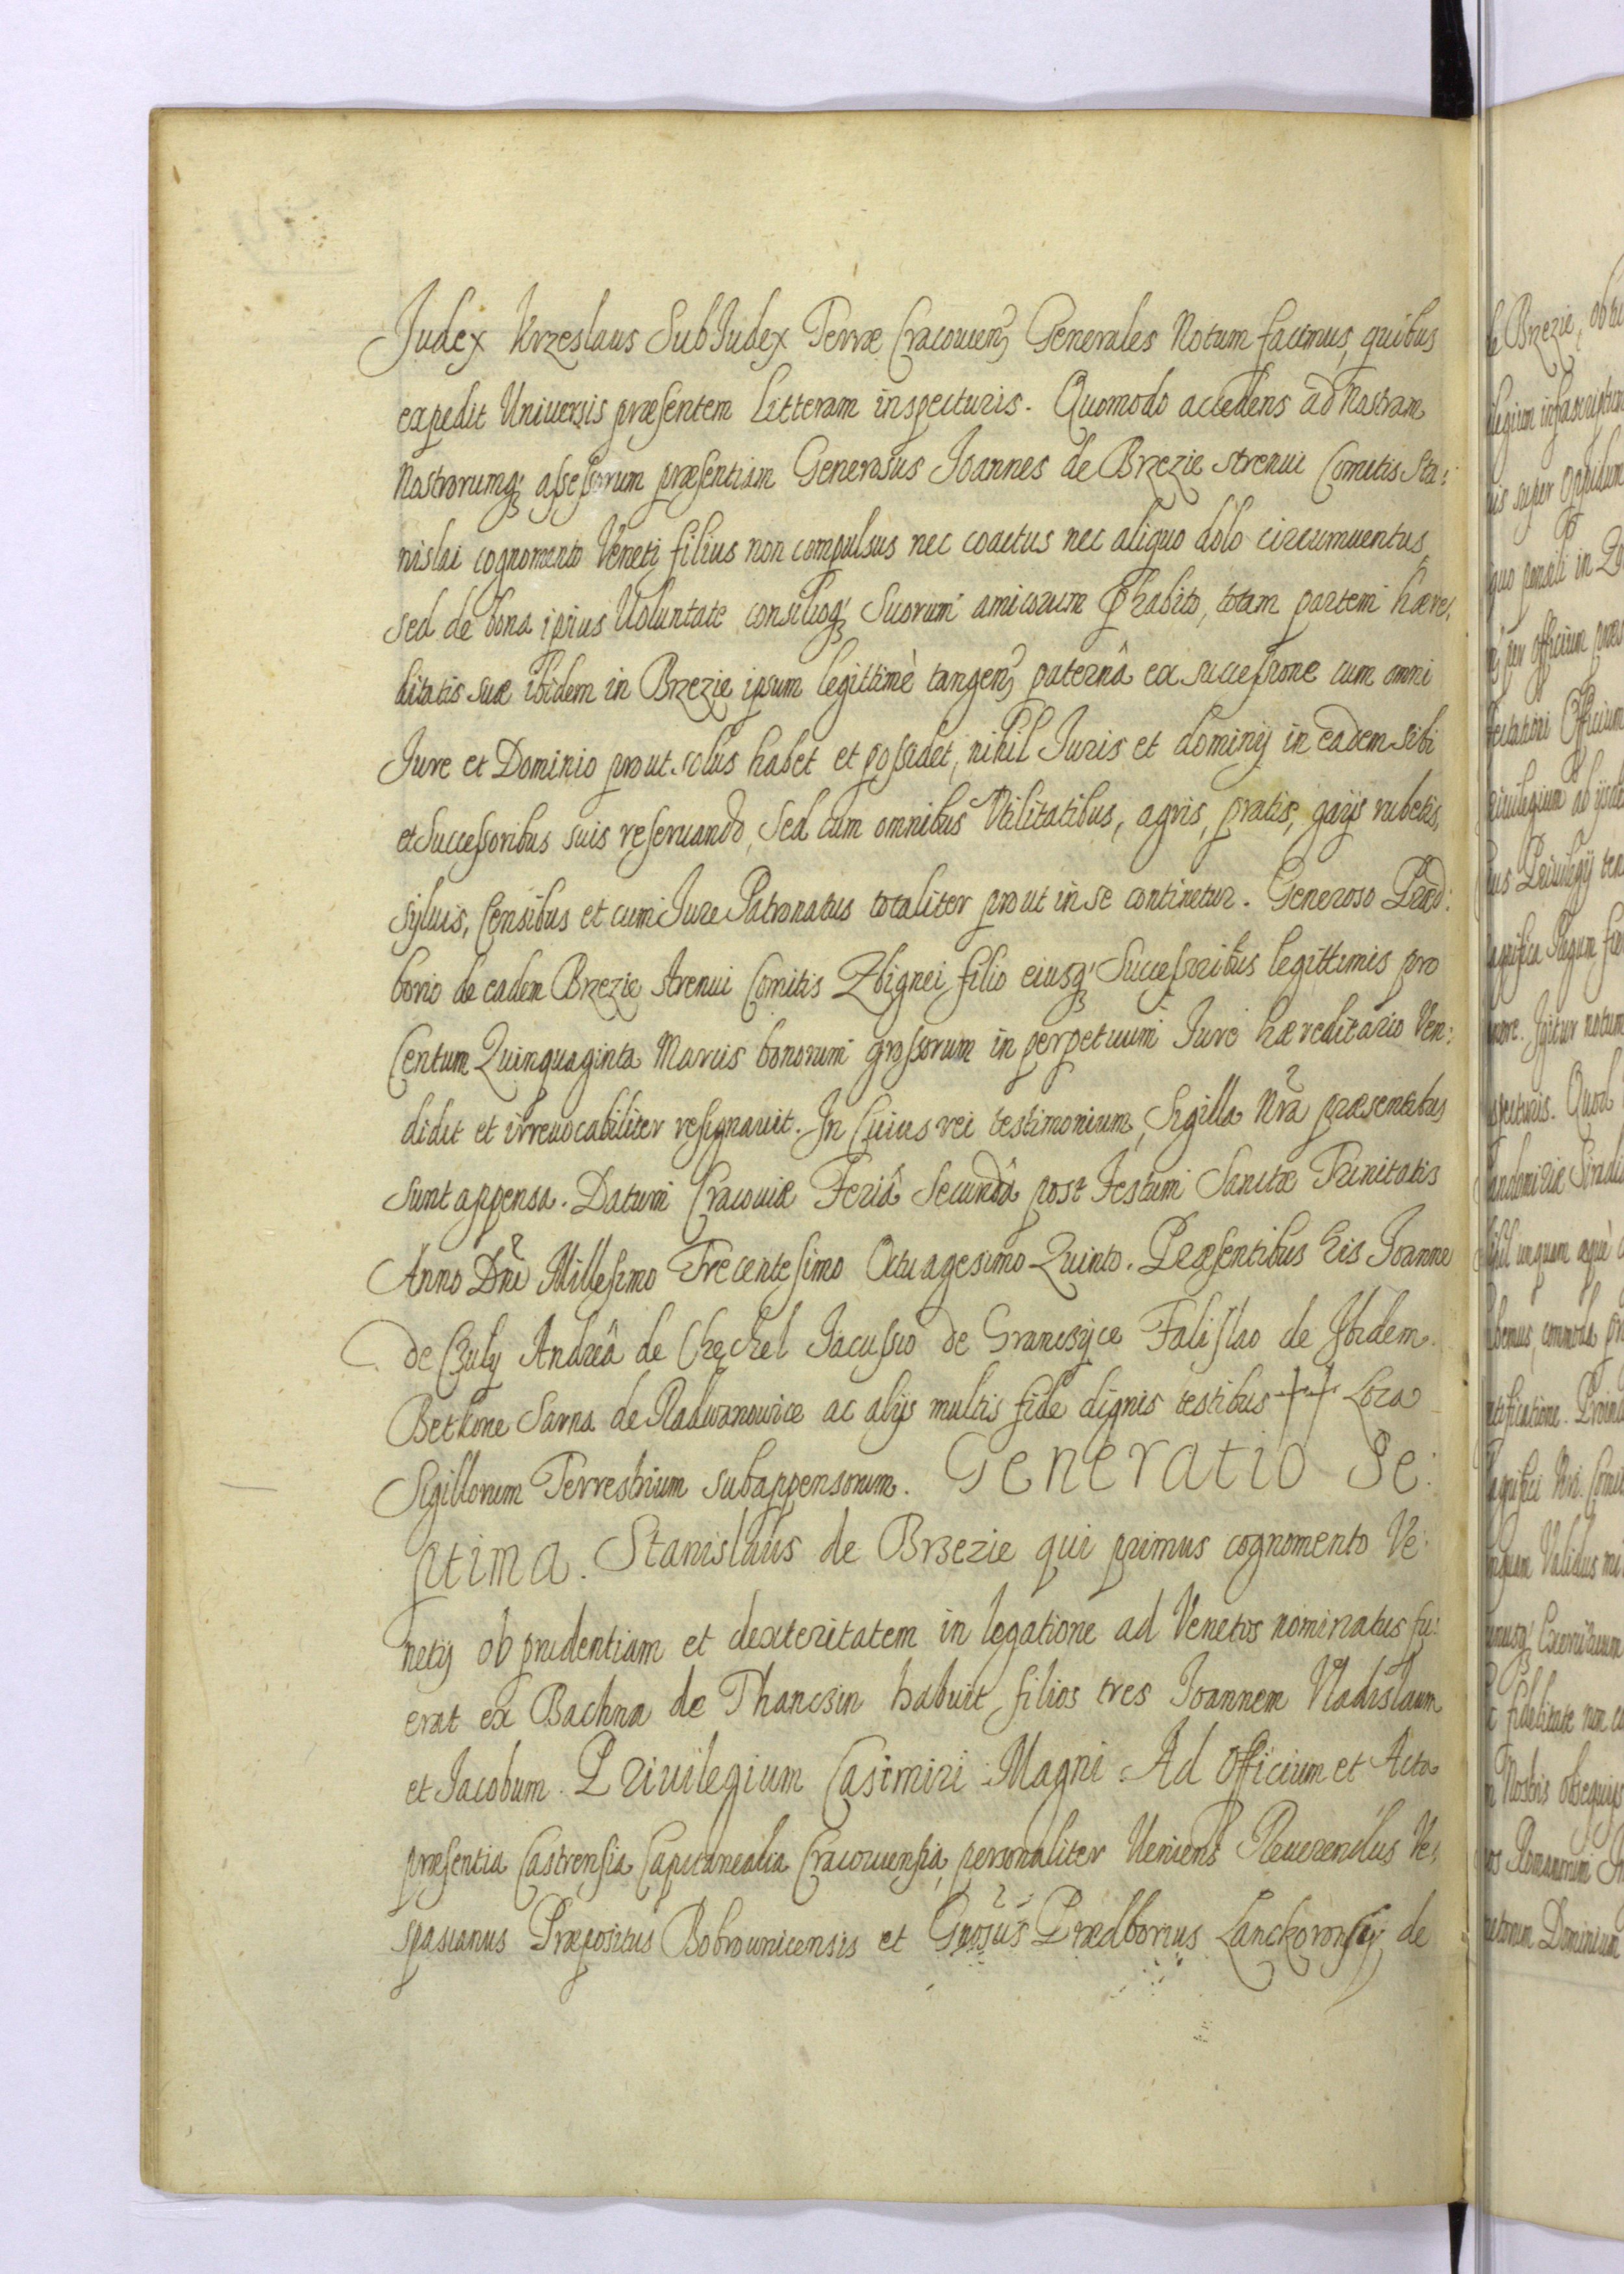 Judex Krzeslaus SubJudex Terræ Cracouien Generales Notum facimus, quibus
expedit Uniuersis præsentem litteram inspecturis. Quomodo accedens ad Nostram
Nostrorumq; assessorum præsentiam Generosus Joannes de Brzezie strenui Comitis Sta:
nislai cognomento Veneti filius non compulsus nec coactus nec aliquo dolo circumuentus,
sed de bona ipsius Voluntate consilioq; Suorum amicorum habito, totam partem hære,
ditatis suæ ibidem in Brzezie ipsum legittimè tangen paternâ ex successione cum omni
Jure et Dominio prout solus habet et possidet, nihil Juris et dominij in eadem sibi
et Successoribus suis reseruando, Sed cum omnibus Vtilitatibus, agris, pratis, gaijs rubetis,
Syluis, Censibus et cum Jure Patronatus totaliter prout in se continetur. Generoso Præd:
borio de eadem Brzezie strenui Comitis Zbignei filio eiusq; Successoribus legittimis pro
Centum Quinquaginta Marcis bonorum grossorum in perpetuum Jure hæreditario Ven:
didit et irreuocabiliter resignauit. In Cuius rei testimonium, Sigilla Nra præsentibus
sunt appensa. Datum Cracouiæ Feriâ Secundâ post Festum Sanctæ Trinitatis
Anno Dni Millesimo Trecentesimo Octuagesimo Quinto. Præsentibus his Joanne
de Czuly Andreâ de Chechel Jacussio de Granczyce Falislao de Ibidem.
Betkone Sarna de Radwanowice ac alijs multis fide dignis testibus Loca
Sigillorum Terrestrium subappensorum. Generatio Se:
ptima. Stanislaus de Brzezie qui primus cognomento Ve:
netij ob prudentiam et dexteritatem in legatione ad Venetos nominatus fu:
erat ex Bachna de Thanczin habuit filios tres Joannem Vladislaum
et Jacobum. Priuilegium Casimiri Magni. Ad Officium et Acta
præsentia Castrensia Capitanealia Cracouiensia, personaliter Veniens Reuerendus Ve,
spasianus Præpositus Bobrownicensis et Gnosus Prædborius Lanckoronsky de